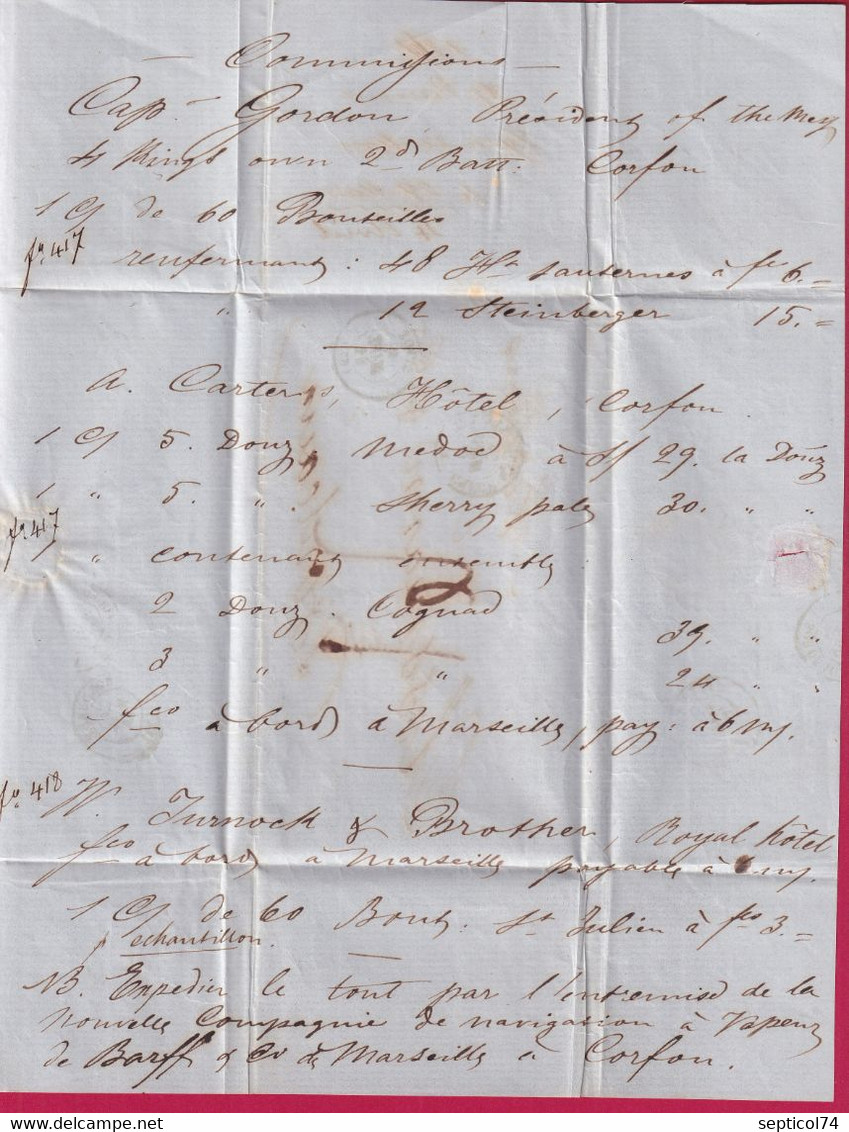 — Commissions —
Cap.ⁿ Gordon, Président of the Mess
4 Kings own 2d Batt: Corfou
1 C/ de 60 Bouteilles
fo. 417 renfermant : 48 Ht Sauternes à fs 6.=
" 12 Steinberger 15.=
A. Carter's, Hôtel, Corfou.
1 C/ 5. Douz. Medoc à S/ 29. la Douz
1 " 5. " Sherry pale 30. " "
fo. 417
1 " contenant ensemble :
2 Douz. Cognac 39. " "
3 " " 24 " "
fco à bord à Marseille, pay: à 6 m/.
fo. 418
W. Turnock & Brother, Royal hôtel
fco à bord à Marseille payable à 6 m/.
1 C/ de 60 Bout: St Julien à fcs 3.=
échantillon.
NB. Expedier le tout par l'entremise de la
nouvelle Compagnie de navigation à Vapeur
de Barff & Co de Marseille à Corfou.
septicol74